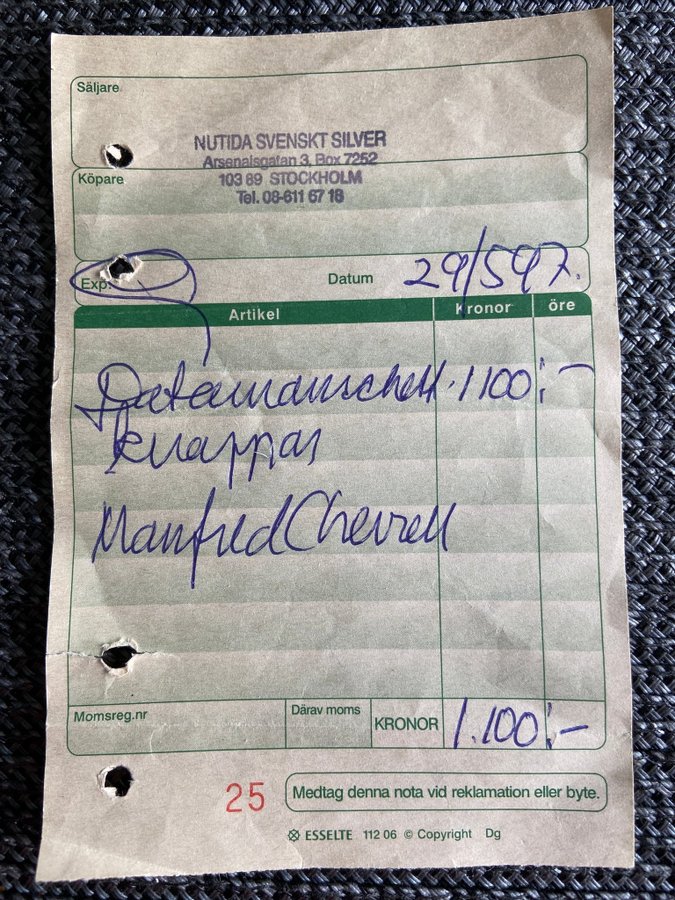 Säljare
NUTIDA SVENSKT SILVER
Arsenalsgatan 3, Box 7252
103 89 STOCKHOLM
Tel. 08-611 67 18
Köpare
Exp.
Datum 29/5 97.
Artikel Kronor öre
Datamanschett- 1100:-
knappar
Manfred
Momsreg.nr Därav moms KRONOR 1.100:-
25 Medtag denna nota vid reklamation eller byte.
ESSELTE 112 06 © Copyright Dg